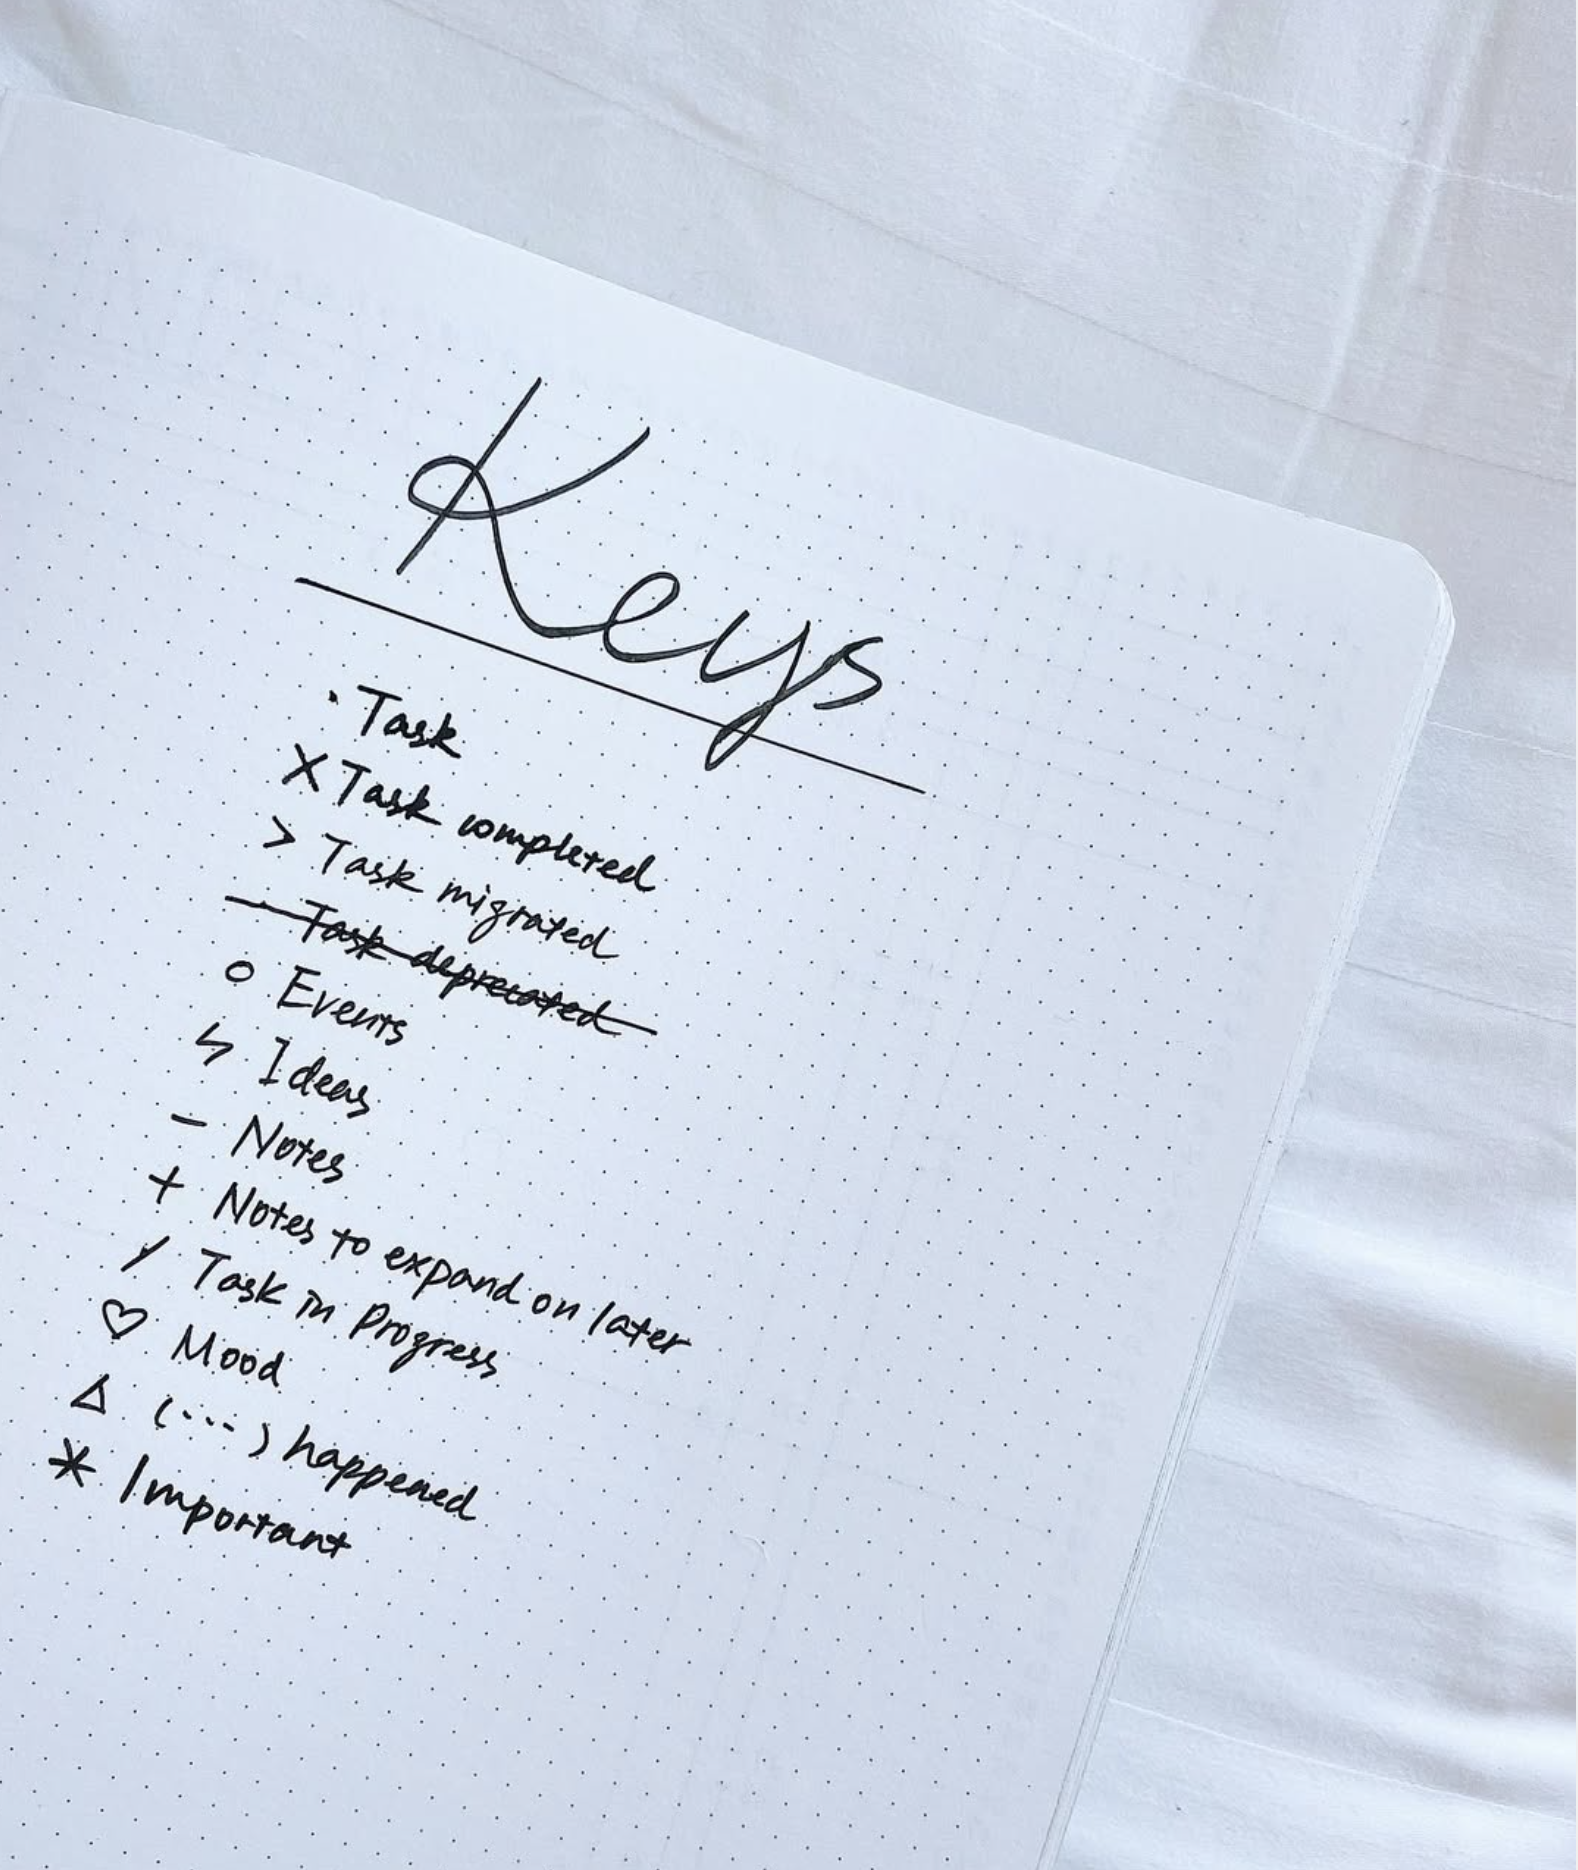 Keys
· Task
X Task completed
> Task migrated
— · Task deprecated
○ Events
ϟ Ideas
– Notes
+ Notes to expand on later
/ Task in Progress
♡ Mood
△ (...) happened
* Important